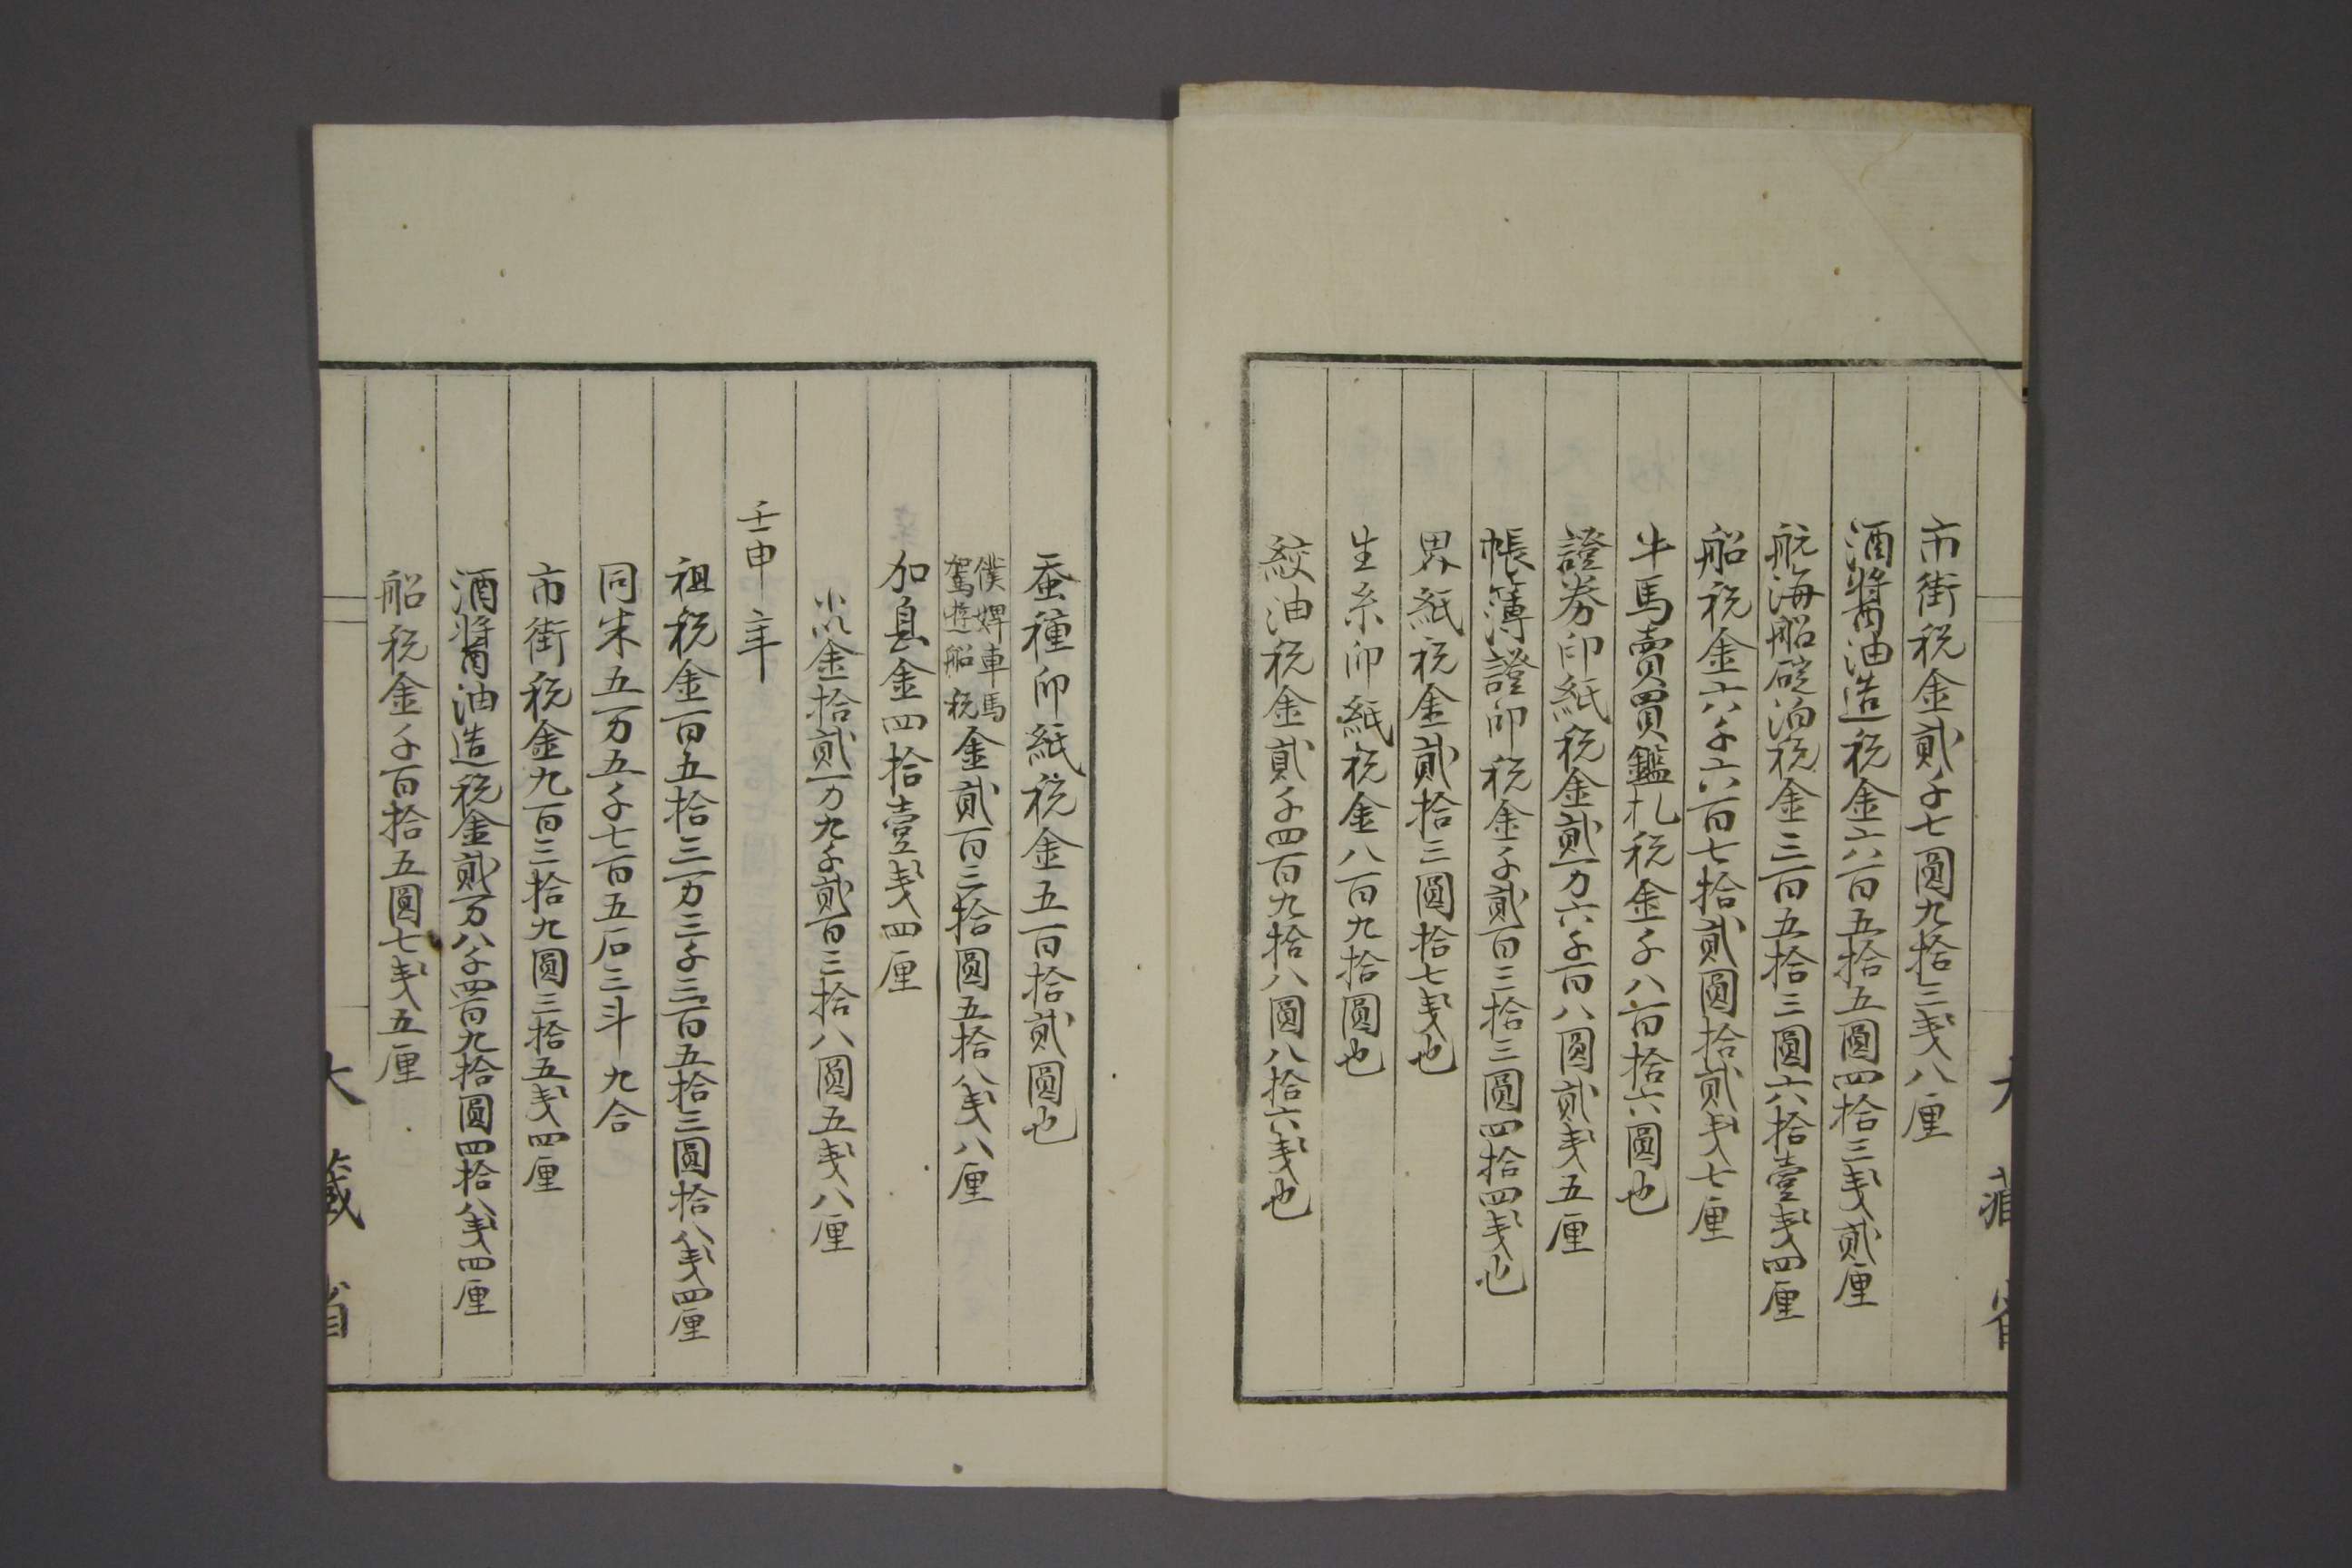 市街税金貳千七圓九拾三戔八厘
酒醬油造税金六百五拾五圓四拾三戔貳厘
航海船碇泊税金三百五拾三圓六拾壹戔四厘
船税金六千六百七拾貳圓拾貳戔七厘
牛馬賣買鑑札税金千八百拾六圓也
證券印紙税金貳万六千百八圓貳戔五厘
帳簿證印税金千貳百三拾三圓四拾四戔也
界紙税金貳拾三圓拾七戔也
生糸印紙税金八百九拾圓也
絞油税金貳千四百九拾八圓八拾六戔也
蚕種印紙税金五百拾貳圓也
僕婢車馬
駕遊船税金貳百三拾圓五拾八戔八厘
加息金四拾壹戔四厘
小以金拾貳万九千貳百三拾八圓五戔八厘
壬申年
祖税金百五拾三万三千三百五拾三圓拾八戔四厘
同米五万五千七百五石三斗九合
市街税金九百三拾九圓三拾五戔四厘
酒醬油造税金貳万八千四百九拾圓四拾八戔四厘
船税金千百拾五圓七戔五厘
大藏省